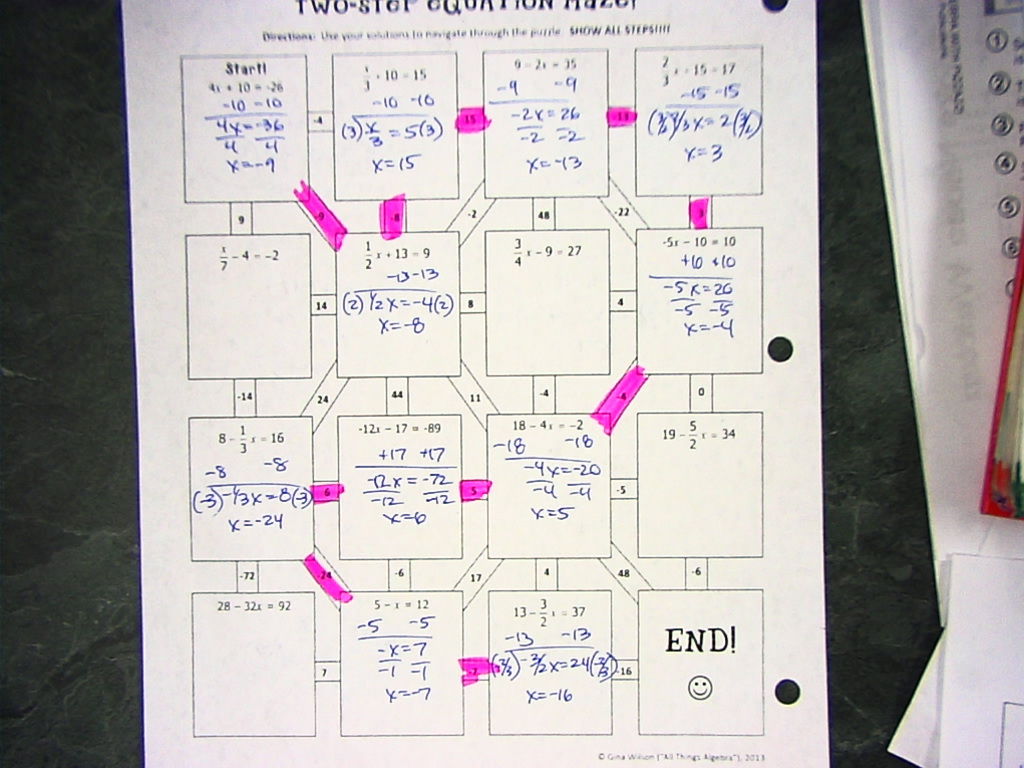 TWO-STEP EQUATION Maze!
Directions: Use your solutions to navigate through the puzzle. SHOW ALL STEPS!!!!
Start!
4x + 10 = -26
-10 -10
4x=-36
4 4
x=-9
-4
x/3 + 10 = 15
-10 -10
(3) x/3 = 5(3)
x=15
15
9 - 2x = 35
-9 -9
-2x=26
-2 -2
x=-13
-13
2/3 x + 15 = 17
-15 -15
(3/2) 2/3 x = 2(3/2)
x=3
9
-9
-8
-2
48
-22
3
x/7 - 4 = -2
14
1/2 x + 13 = 9
-13 -13
(2) 1/2 x = -4(2)
x=-8
8
3/4 x - 9 = 27
4
-5x - 10 = 10
+10 +10
-5x=20
-5 -5
x=-4
-14
24
44
11
-4
-4
0
8 - 1/3 x = 16
-8 -8
(-3) -1/3x=8(-3)
x=-24
6
-12x - 17 = -89
+17 +17
-12x=-72
-12 -12
x=6
5
18 - 4x = -2
-18 -18
-4x=-20
-4 -4
x=5
-5
19 - 5/2 x = 34
-72
-24
-6
17
4
48
-6
28 - 32x = 92
7
5 - x = 12
-5 -5
-x=7
-1 -1
x=-7
-7
13 - 3/2 x = 37
-13 -13
-3/2x=24
x=-16
-16
END!
© Gina Wilson ("All Things Algebra"), 2013
1
2
3
4
5
6